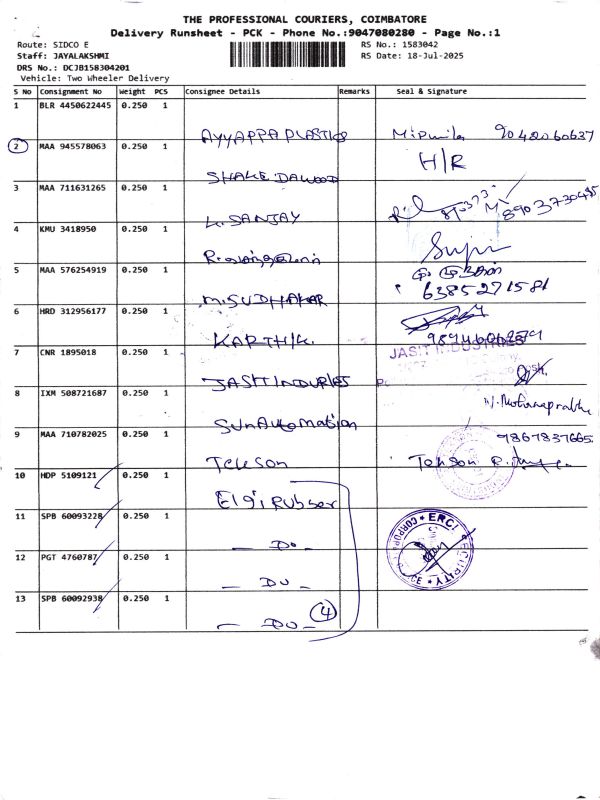 THE PROFESSIONAL COURIERS, COIMBATORE
Delivery Runsheet - PCK - Phone No.:9047080280 - Page No.:1
Route: SIDCO E
RS No.: 1583042
Staff: JAYALAKSHMI
RS Date: 18-Jul-2025
DRS No.: DCJB158304201
Vehicle: Two Wheeler Delivery
S No Consignment No Weight PCS Consignee Details Remarks Seal & Signature
1 BLR 4450622445 0.250 1
AYYAPPA PLASTICS 9042060637
2 MAA 945578063 0.250 1
H/R
SHAKE DAWOOD
3 MAA 711631265 0.250 1
K. SANJAY 8903730485
4 KMU 3418950 0.250 1
5 MAA 576254919 0.250 1
6385271581
M. SUDHAKAR
6 HRD 312956177 0.250 1
KARTHIK.
7 CNR 1895018 0.250 1
JASIT INDUSTRIES
JASIT INDURIES
8 IXM 508721687 0.250 1
Sun Automation
9 MAA 710782025 0.250 1
9867837665
Teleson
10 HDP 5109121 0.250 1
Elgi Rubber
11 SPB 60093228 0.250 1
ERCI
SECURITY
- Do -
12 PGT 4760787 0.250 1
- Do -
13 SPB 60092938 0.250 1
4
- Do -